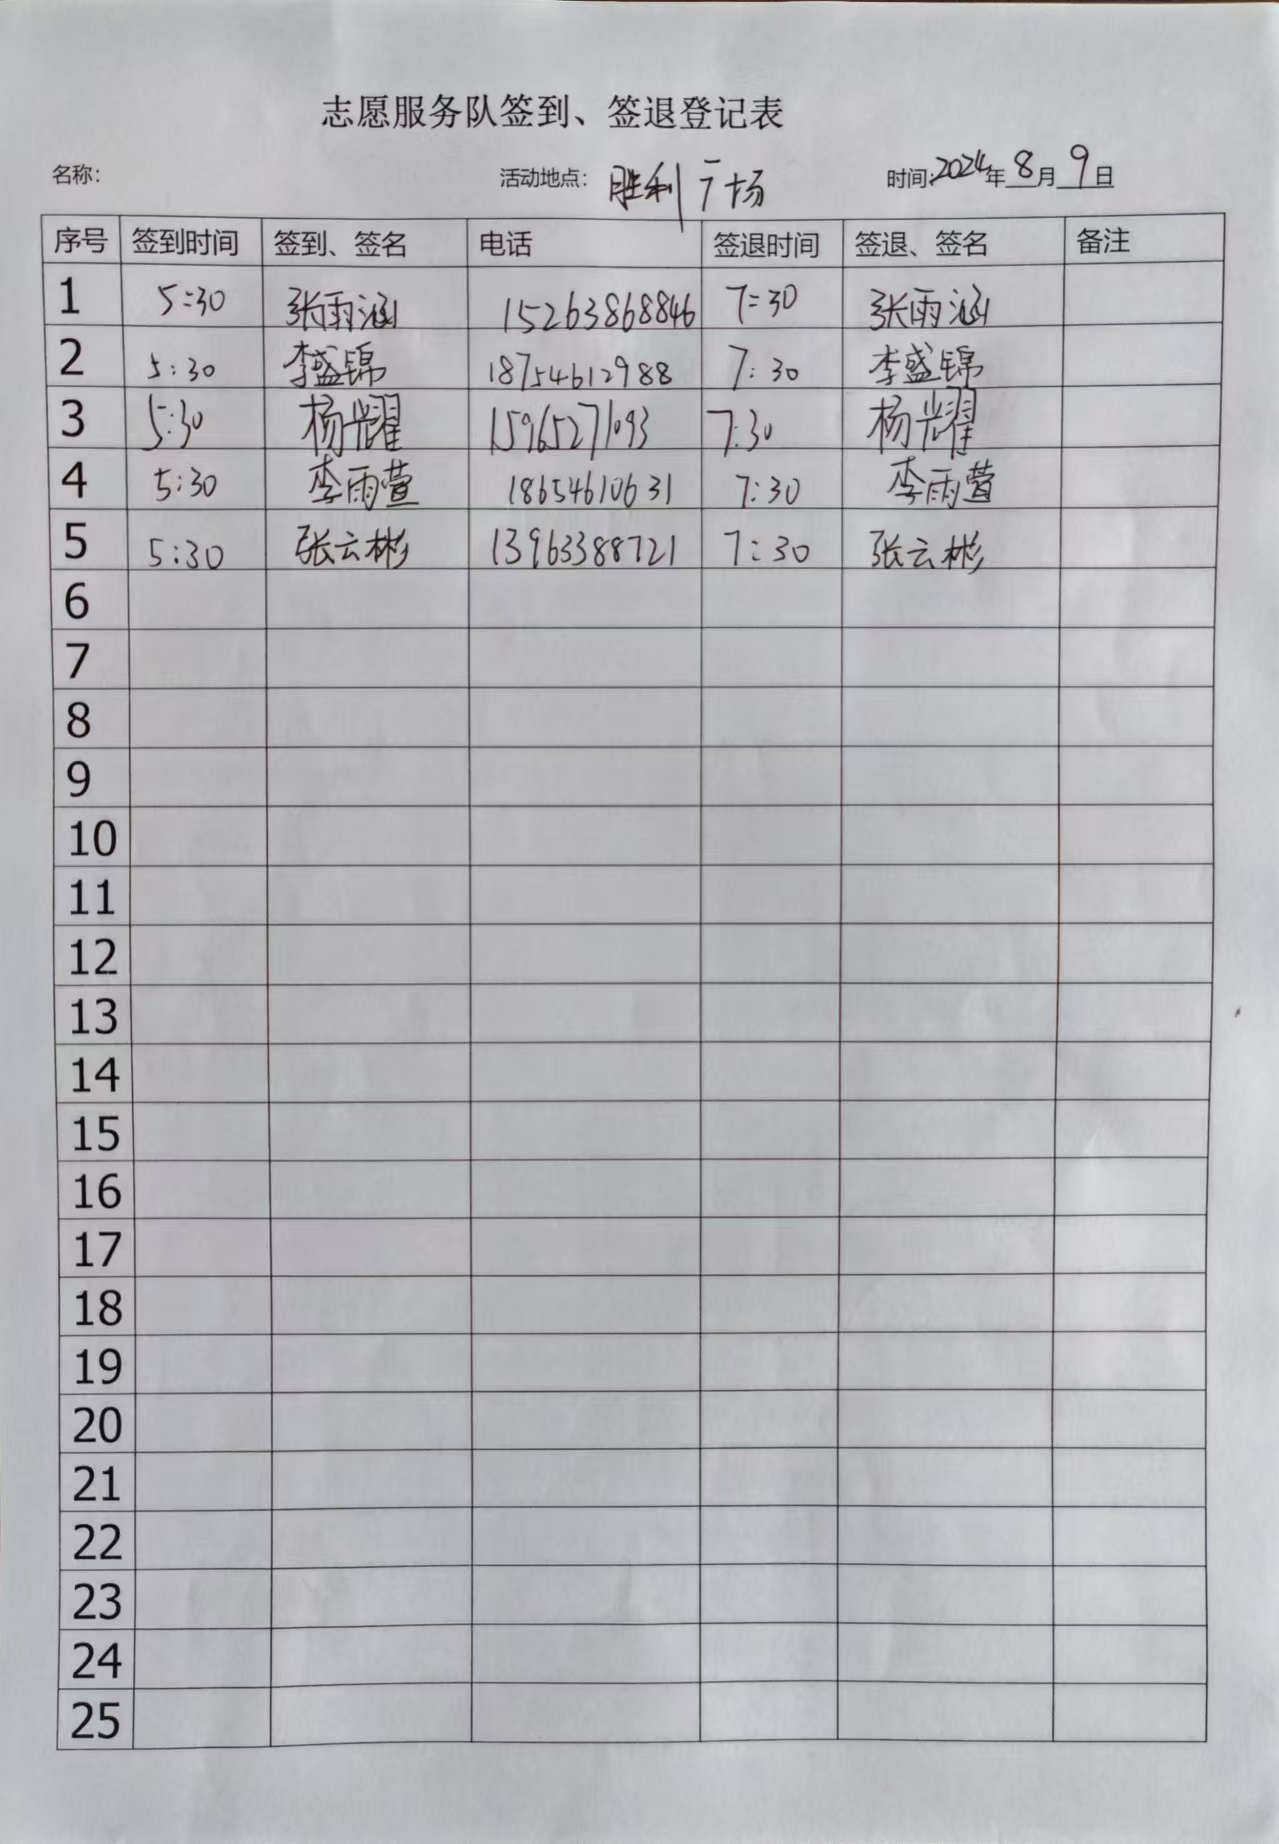 志愿服务队签到、签退登记表
名称: 活动地点: 胜利广场 时间:2024年8月9日
序号 签到时间 签到、签名 电话 签退时间 签退、签名 备注
1 5:30 张雨涵 15263868846 7:30 张雨涵
2 5:30 李盛锦 18754612988 7:30 李盛锦
3 5:30 杨耀 15965271093 7:30 杨耀
4 5:30 李雨萱 18654610631 7:30 李雨萱
5 5:30 张云彬 13963388721 7:30 张云彬
6
7
8
9
10
11
12
13
14
15
16
17
18
19
20
21
22
23
24
25